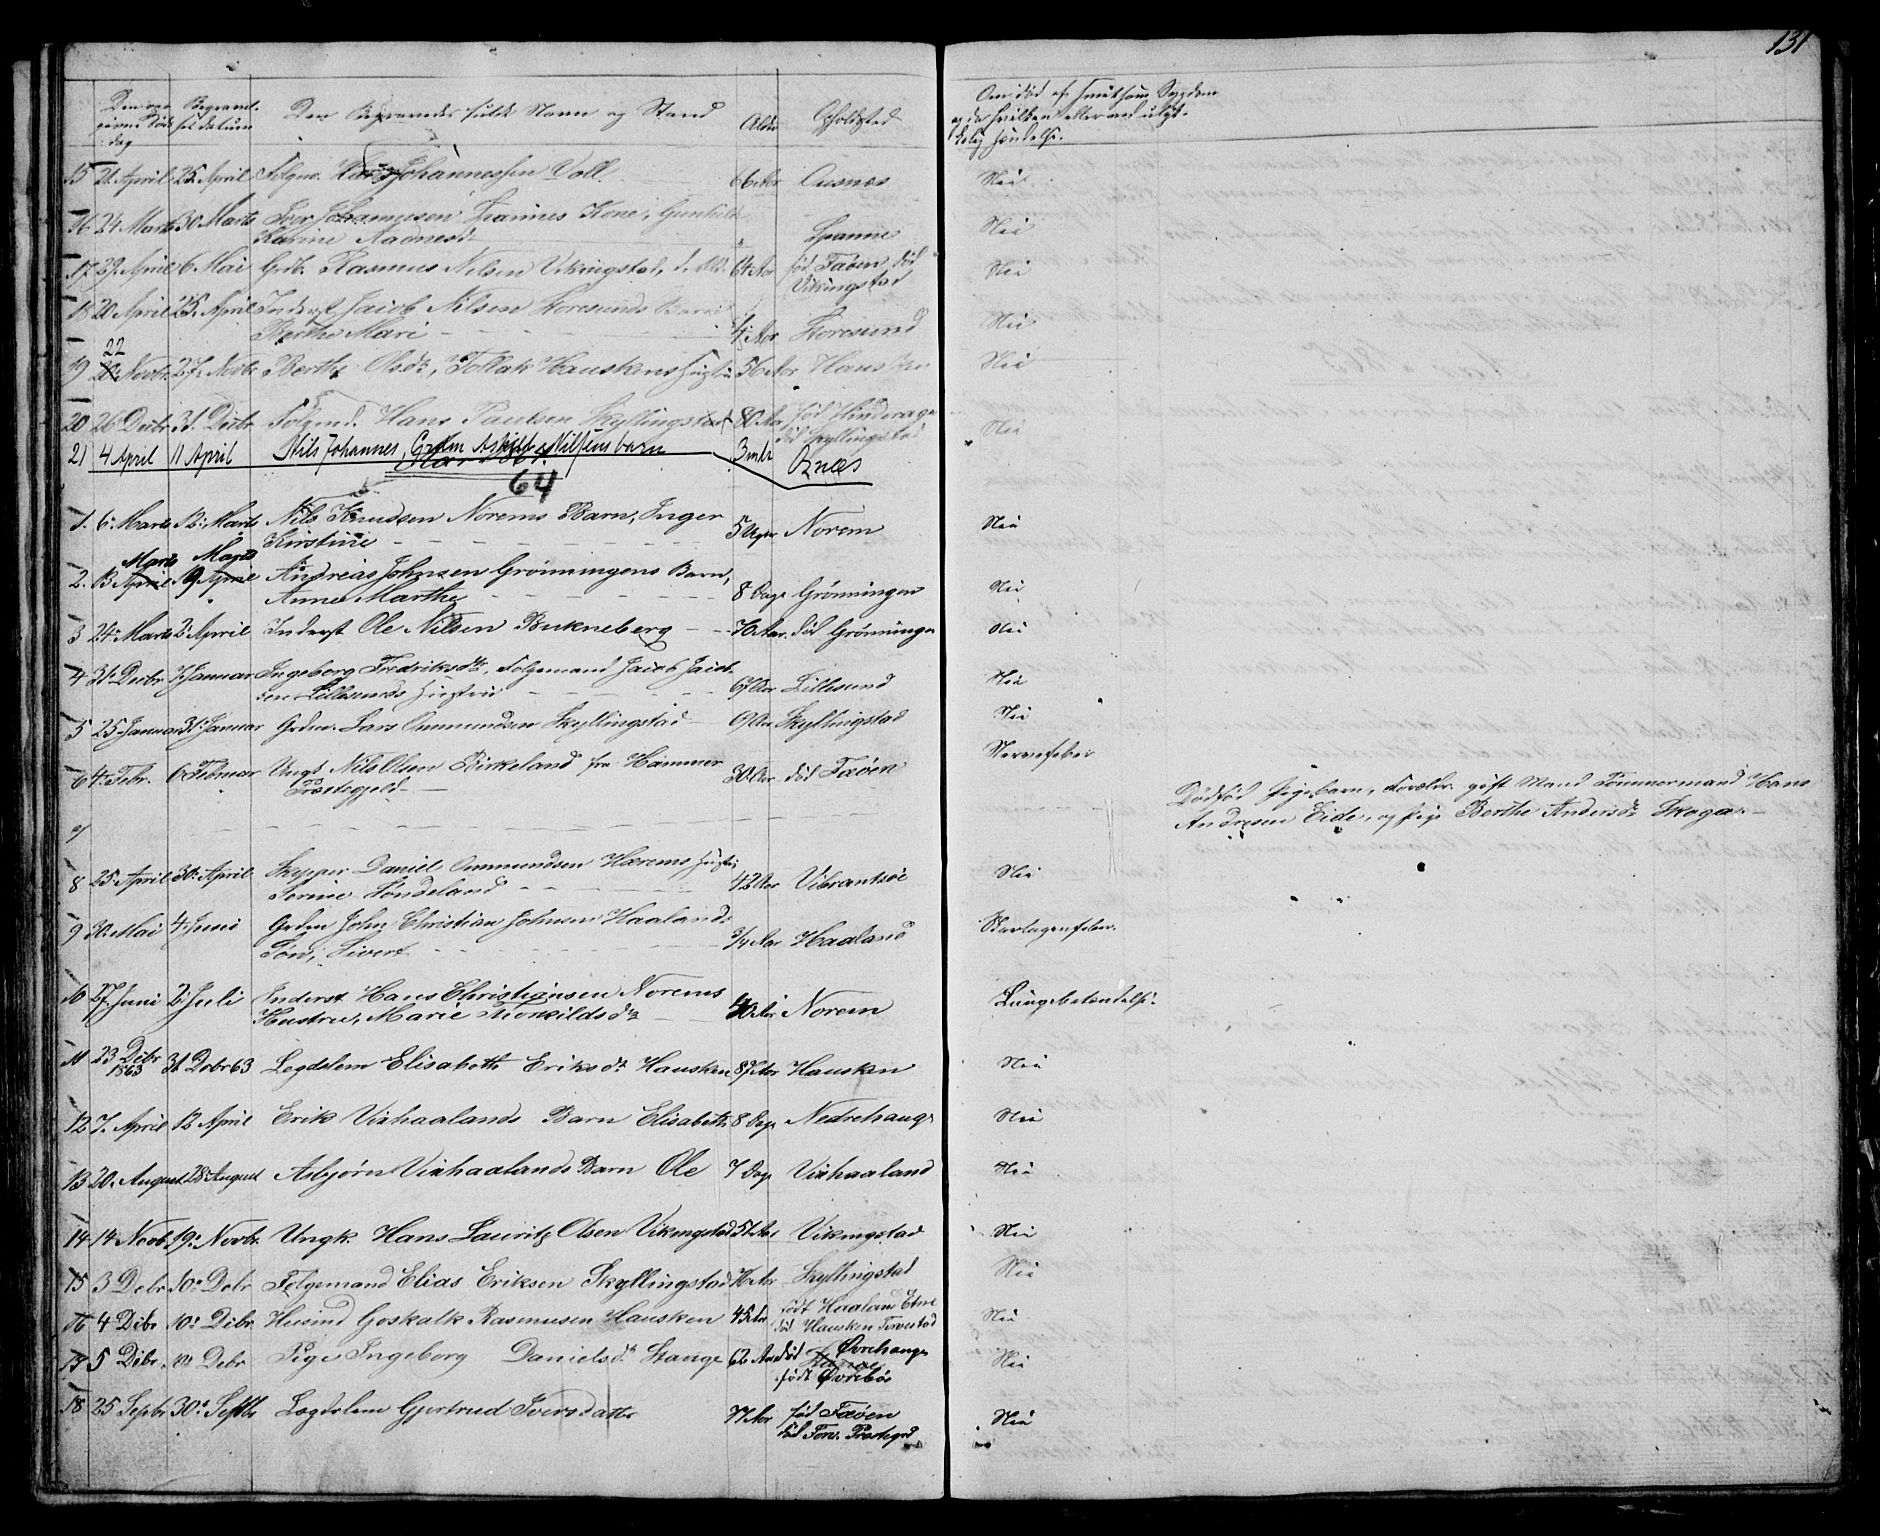 131
Den an- Begravel- Den Begravedes fulde Navn og Stand Alder Opholdssted Om død af smitsom Sygdom
givne Døds- ses datum og da hvilken eller ved ulyk-
dag kelig Hændelse.
15 21. April 25. April Folgm. Johannessen Voll 66 Aar Ausnes Nei
16 24 Marts 30 Marts Iver Spannes Kone, Gunhild
Karine Aadnesd. Spanne Nei
17 29. April 6. Mai Grdb. Rasmus Nilsen Vikingstad, 64 Aar fød Faøen død Nei
Vikingstad
18 20 April 25. April Inderst Jacob Nilsen Storesunds Barn
Berthe Mari 4 Aar Storesund Nei
22
19 Novbr. 27. Novbr Berthe Olsdr, Tollak Hauskens Hustru 56 Aar Hausken Nei
20 26 Decbr 31. Decbr Folgemd. Hans Paulsen Skyllingstad 80 Aar fød Hinderage Nei
død Skyllingstad
21 4 April 11 April Nils Johannes, Grdm Askild Nilsens barn 3 mdr Oznæs
64
1. 6. Marts 12. Marts Nils Knudsen Norems Barn, Inger
Kirstine 5 Uger Norem Nei
Marts Marts
2. 13 April 19 April Andreas Johnsen Grønningens Barn,
Anne Marthe 8 Dage Grønningen Nei
3 24. Marts 2 April Inderst Ole Nilsen Bukneberg 76 Aar. død Grønningen Nei
4 31. Decbr 7 Januar Ingeborg Fredriksdtr, Folgemand Jacob Jacob-
sen Lillesunds Hustru 67 Aar Lillesund Nei
5 25. Januar 31. Januar Grdm. Lars Ommundsen Skyllingstad Aar Skyllingstad Nei
6 4. Febr. 6 Februar Ungk. Nils Olsen Birkeland fra Hammer
Præstegjeld 30 Aar død Faøen Nervefeber
7 Dødfød Pigebarn, Forældr. gift Mand Tømmermand Hans
Andresen Eide, og Pige Berthe Andersdr Skoga.
8 25. April 30. April Skipper Daniel Ommundsen Hærems Hustru
Serine Tøndeland 42 Aar Vibrantsøe Nei
9 30. Mai 4. Juni Grdm John Christian Johnsen Haalands
Søn, Sivert 3/4 Aar Haaland Skarlagensfeber.
10 27. Juni 2. Juli Inderst Hans Christiansen Norems
Hustru, Marie Thorkildsdr 40 Aar Norem Lungebetændelse.
11 23 Dcbr 31. Dcbr 63 Legdslem Elisabeth Eriksdr Hausken 87 Aar Hausken Nei
1863
12 7. April 12 April Erik Vixhaalands Barn Elisabeth 8 Dage Nedrehauge Nei
13 20. August 28. August Asbjørn Vixhaalands Barn Ole 7 Dage Vixhaaland Nei
14 14 Novb. 19. Novbr. Ungk. Hans Lauritz Olsen Vikingstad 51 Aar Vikingstad Nei
15 3 Dcbr 10. Dcbr Folgemand Elias Eriksen Skyllingstad 76 Aar Skyllingstad Nei
16 4 Dcbr 10. Dcbr Husmd Goskalk Rasmusen Hausken 45 Aar født Haaland Etne Nei
død Hausken Torvestad
17 5 Dcbr. 10 Dcbr. Pige Ingeborg Danielsdr Stange 62 Aar død Øvrehauge Nei
Stange
født Øvrebøe
18 25 Septbr 30. Septbr Lægdslem Gjertrud Iversdatter 77 Aar fød Faøen Nei
død Torv. Prestegrd